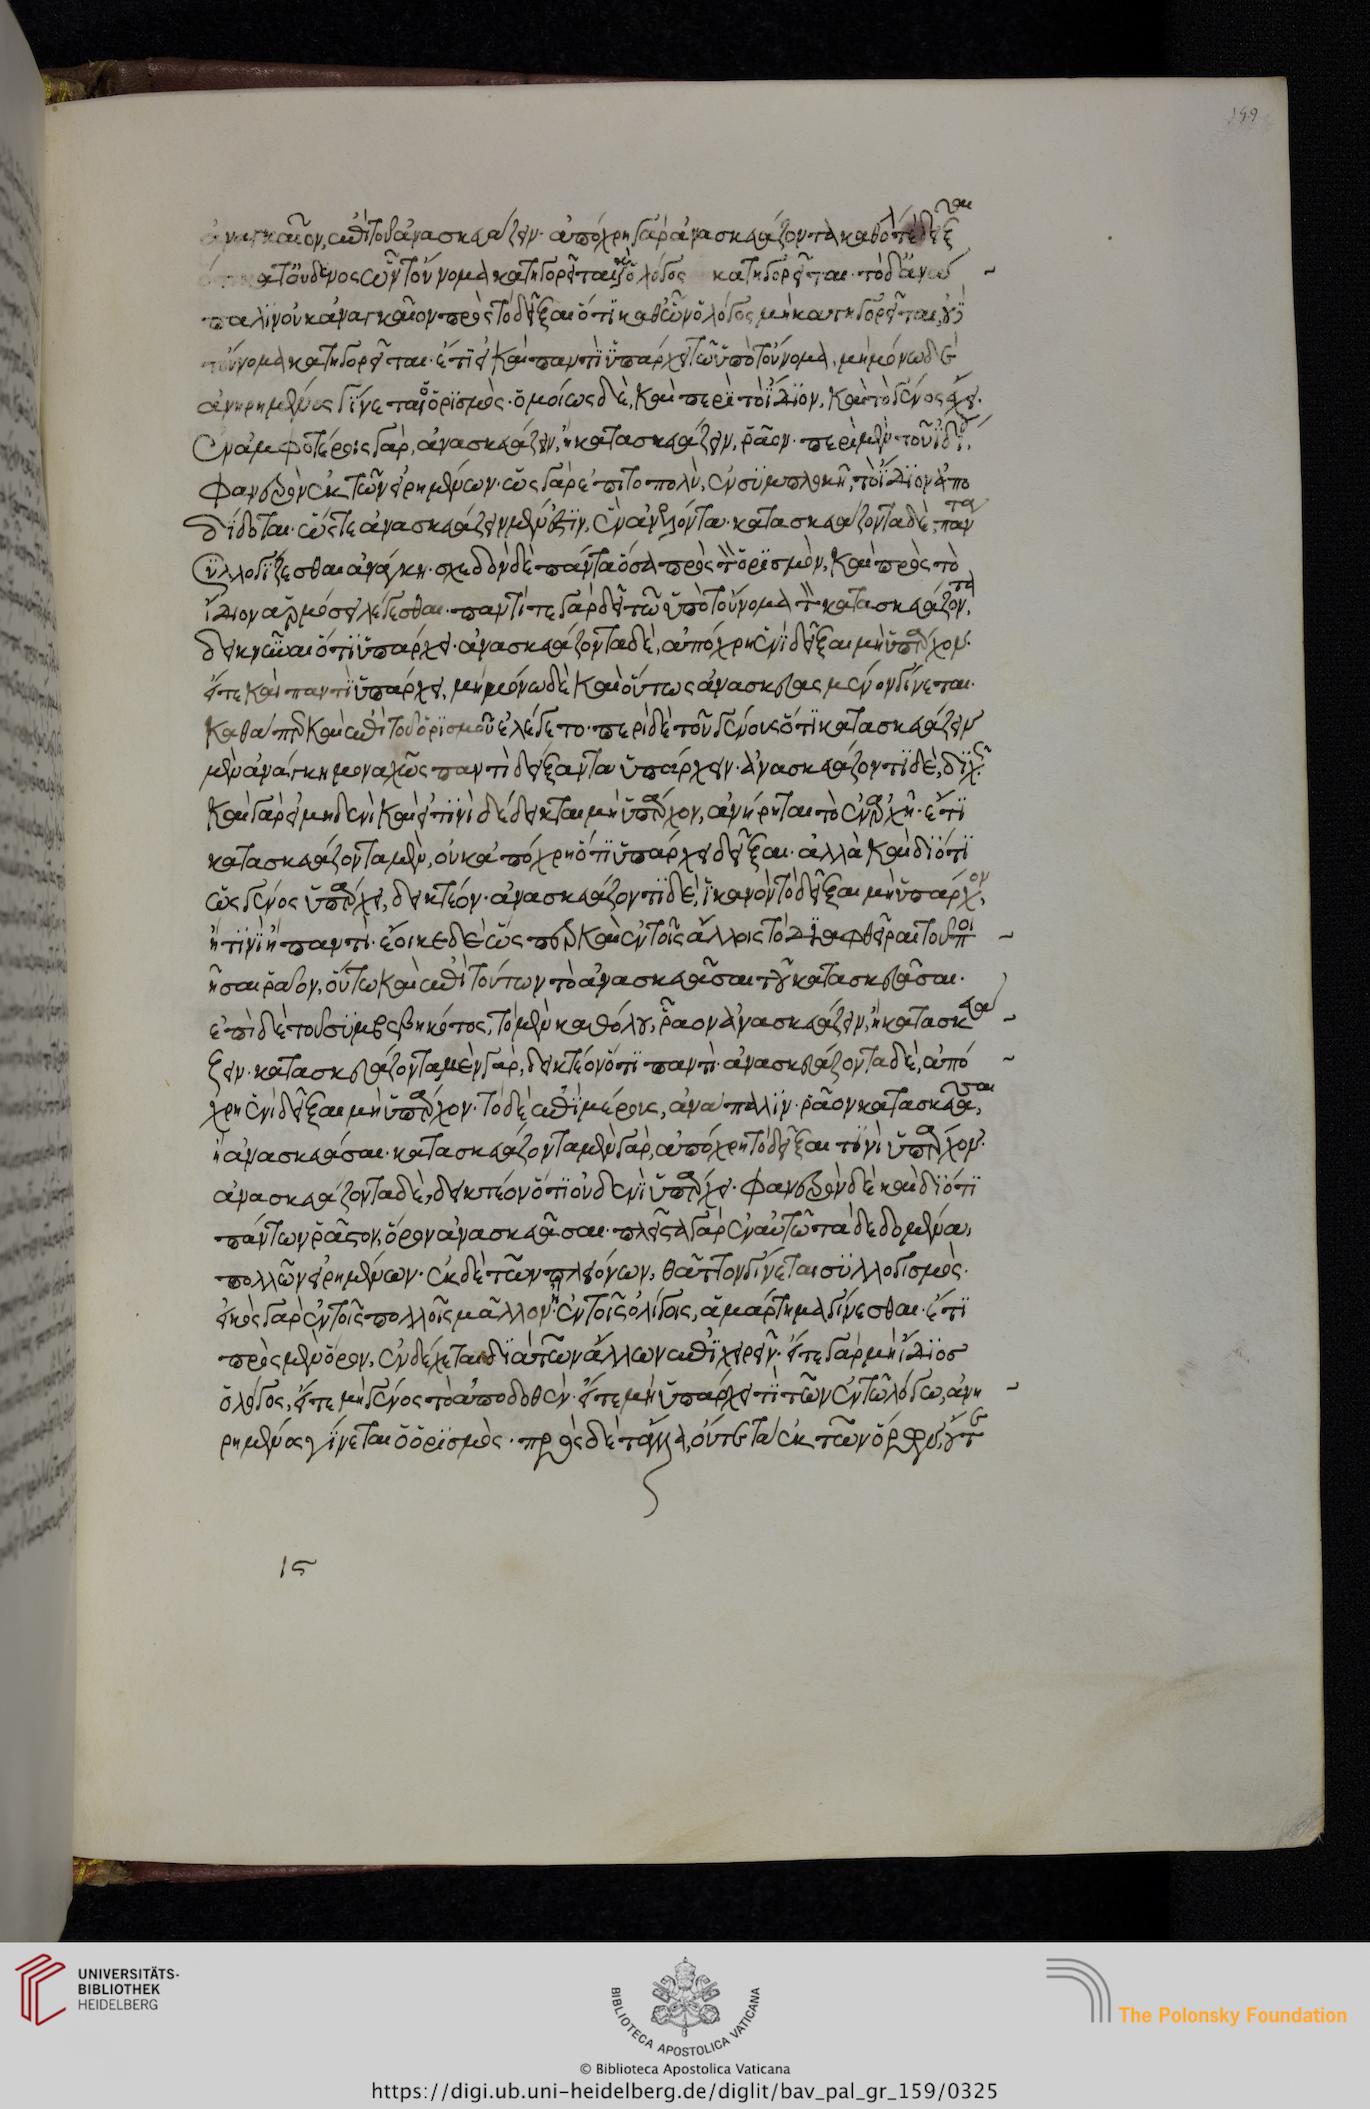 159
ἀναγκαῖον, ἐπὶ τοῦ ἀνασκευάζειν· ἀπόχρη γὰρ ἀνασκευάζοντα καθόλου τε δεῖξαι
κατ' οὐδενὸς ὧν τοὔνομα κατηγορεῖται ὁ λόγος κατηγορεῖται· τὸ δ' ἄνω
πάλιν οὐκ ἀναγκαῖον πρὸς τὸ δεῖξαι ὅτι καθ' ὧν ὁ λόγος μὴ κατηγορεῖται, οὐ
τοὔνομα κατηγορεῖται· ἔτι εἰ καὶ παντὶ ὑπάρχει τῶ ὑπὸ τοὔνομα, μὴ μόνω δὲ
ἀνηρημένος γίνεται ὁ ὁρισμός· ὁμοίως δὲ, καὶ περὶ τὸ ἴδιον, καὶ τὸ γένος ἔχει·
ἐν ἀμφοτέροις γὰρ, ἀνασκευάζειν, ἢ κατασκευάζειν, ῥᾶον· περὶ μὲν τοῦ ἰδίου,
φανερὸν ἐκ τῶν εἰρημένων· ὡς γὰρ ἐπιτοπολὺ, ἐν συμπλοκῇ, τὸ ἴδιον ἀπο
δίδοται· ὥστε ἀνασκευάζειν μὲν ἔστιν, ἓν ἀνελόντα· κατασκευάζοντα δὲ, πάντα
συλλογίζεσθαι ἀνάγκη· σχεδὸν δὲ πάντα ὅσα πρὸς τὸν ὁρισμὸν, καὶ πρὸς τὸ
ἴδιον ἁρμόσει λέγεσθαι· παντί τε γὰρ δεῖ τῶ ὑπὸ τοὔνομα τὸν κατασκευάζοντα,
δεικνύναι ὅτι ὑπάρχει· ἀνασκευάζοντα δὲ, ἀπόχρη ἑνὶ δεῖξαι μὴ ὑπάρχον·
εἴτε καὶ παντὶ ὑπάρχει, μὴ μόνω δὲ καὶ οὕτως ἀνασκευασμένον γίνεται·
καθάπερ καὶ ἐπὶ τοῦ ὁρισμοῦ ἐλέγετο· περὶ δὲ τοῦ γένους ὅτι κατασκευάζειν
μὲν ἀνάγκη μοναχῶς παντὶ δείξαντα ὑπάρχειν· ἀνασκευάζοντι δὲ, διχῶς
καὶ γὰρ εἰ μηδενὶ καὶ εἰ τινὶ δέδεικται μὴ ὑπάρχον, ἀνήρηται τὸ ἐν ἀρχῇ· ἔτι
κατασκευάζοντα μὲν, οὐκ ἀπόχρη ὅτι ὑπάρχει δεῖξαι· ἀλλὰ καὶ διότι
ὡς γένος ὑπάρχει, δεικτέον· ἀνασκευάζοντι δὲ, ἱκανὸν τὸ δεῖξαι μὴ ὑπάρχον,
ἢ τινὶ ἢ παντὶ· ἔοικε δὲ ὥσπερ καὶ ἐν τοῖς ἄλλοις τὸ διαφθεῖραι τοῦ ποι
ῆσαι ῥᾶον, οὕτω καὶ ἐπὶ τούτων τὸ ἀνασκευάσαι τοῦ κατασκευάσαι·
ἐπὶ δὲ τοῦ συμβεβηκότος, τὸ μὲν καθόλου, ῥᾶον ἀνασκευάζειν, ἢ κατασκευά
ζειν· κατασκευάζοντα μὲν γὰρ, δεικτέον ὅτι παντὶ· ἀνασκευάζοντα δὲ, ἀπό
χρη ἑνὶ δεῖξαι μὴ ὑπάρχον· τὸ δὲ ἐπὶ μέρους, ἀνάπαλιν· ῥᾶον κατασκευάσαι,
ἢ ἀνασκευάσαι· κατασκευάζοντα μὲν γὰρ, ἀπόχρη τὸ δεῖξαι τινὶ ὑπάρχον·
ἀνασκευάζοντα δὲ, δεικτέον ὅτι οὐδενὶ ὑπάρχει· φανερὸν δὲ καὶ διότι
πάντων ῥᾷστον, ὅρον ἀνασκευάσαι· πλεῖστα γὰρ ἐν αὐτῶ τὰ δεδομένα,
πολλῶν εἰρημένων· ἐκ δὲ τῶν πλειόνων, θᾶττον γίνεται συλλογισμός·
εἰκὸς γὰρ ἐν τοῖς πολλοῖς μᾶλλον ἢ ἐν τοῖς ὀλίγοις, ἁμάρτημα γίνεσθαι· ἔτι
πρὸς μὲν ὅρον, ἐνδέχεται διὰ τῶν ἄλλων ἐπιχειρεῖν· εἴτε γὰρ μὴ ἴδιος
ὁ λόγος, εἴτε μὴ γένος τὸ ἀποδοθὲν· εἴτε μὴ ὑπάρχει τὶ τῶν ἐν τῶ λόγω, ἀνη
ρημένος γίνεται ὁ ὁρισμός· πρὸς δὲ τἆλλα, οὔτε τὰ ἐκ τῶν ὅρων, οὔτε
ις
UNIVERSITÄTS-
BIBLIOTHEK
HEIDELBERG
BIBLIOTECA APOSTOLICA VATICANA
The Polonsky Foundation
© Biblioteca Apostolica Vaticana
https://digi.ub.uni-heidelberg.de/diglit/bav_pal_gr_159/0325